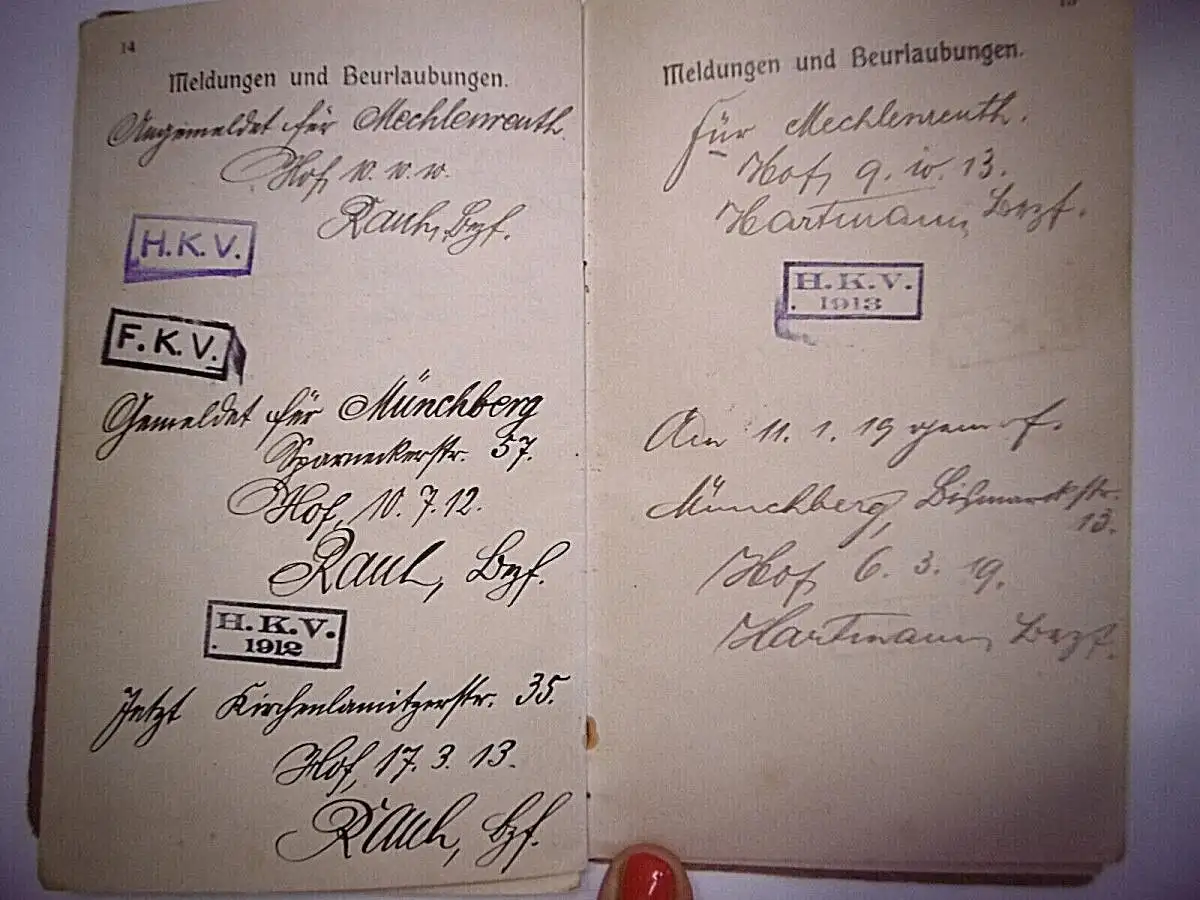 14
Meldungen und Beurlaubungen.
Angemeldet für Mechlenreuth.
Hof,
Rauh, Bzf.
H.K.V.
F.K.V.
Gemeldet für Münchberg
Sparneckerstr. 57.
Hof, 10.7.12.
Rauh, Bzf.
H.K.V.
1912
Jetzt Kirchenlamitzerstr. 35.
Hof, 17.3.13.
Rauh, Bzf.
Meldungen und Beurlaubungen.
Für Mechlenreuth.
Hof, 9. 13.
Hartmann, Bezf.
H.K.V.
1913
Am 11.1.19
Münchberg, Bismarckstr.
13.
Hof, 6.3.19.
Hartmann, Bezf.